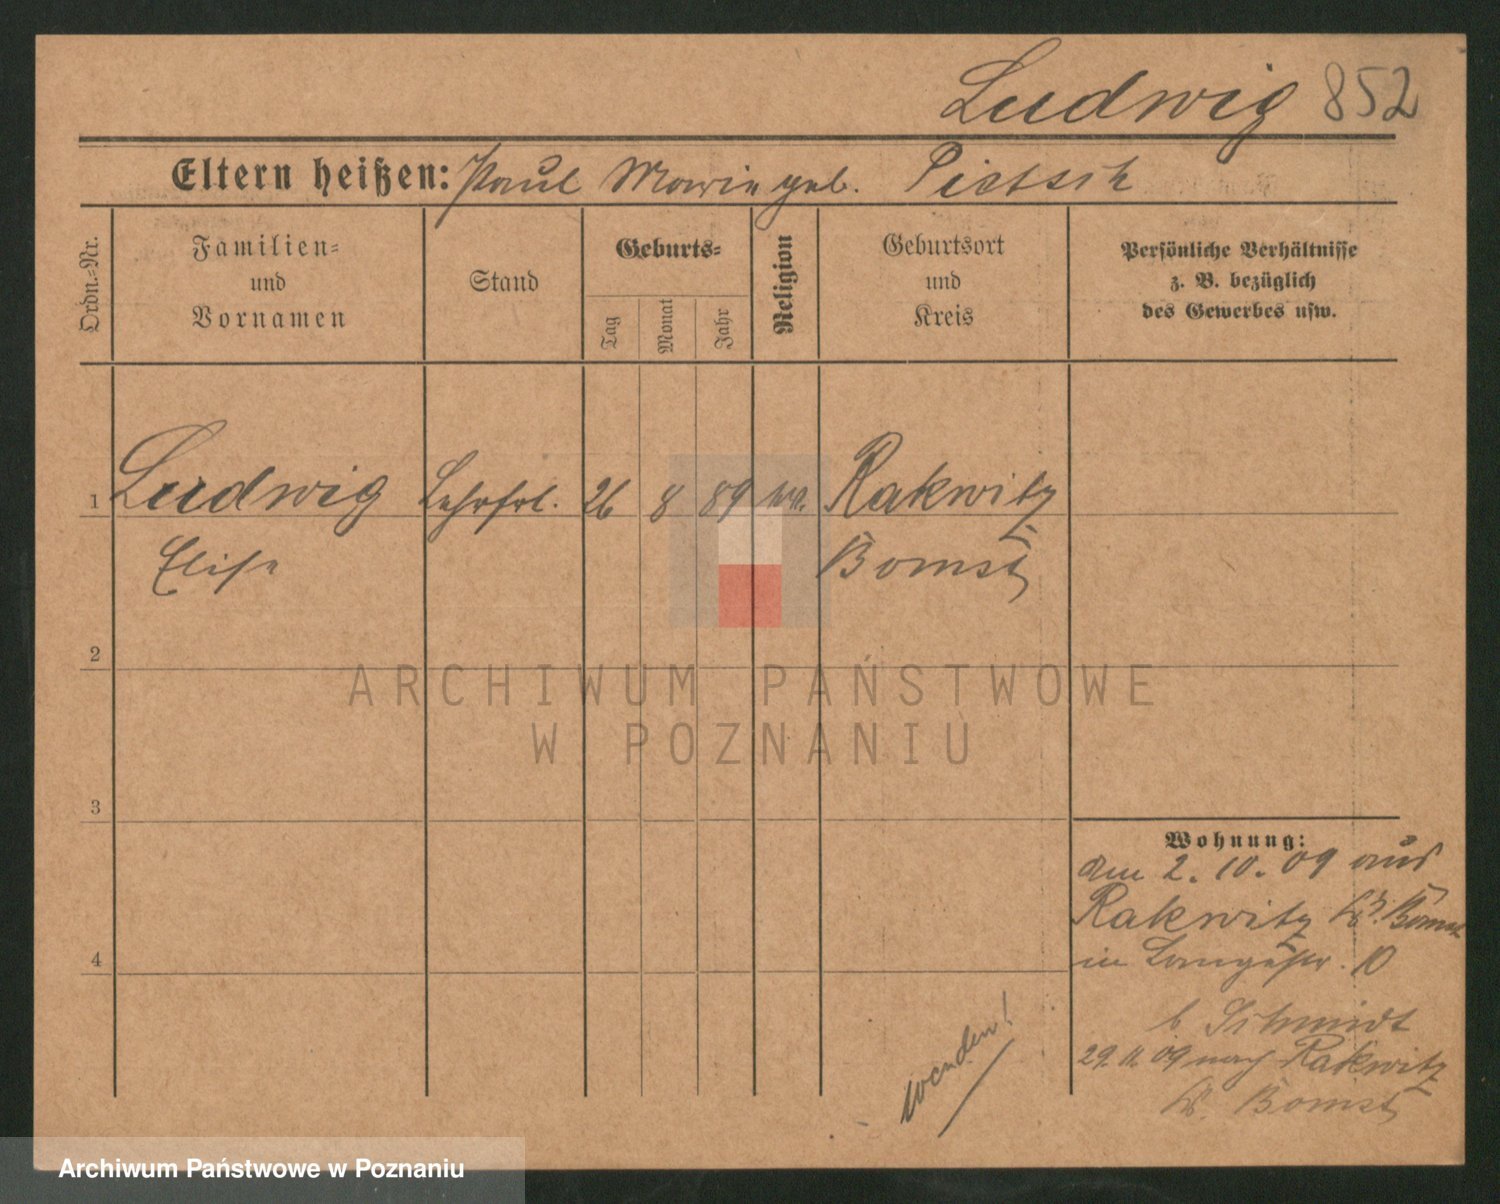 Ludwig 852
Eltern heißen: Paul Marie geb. Pietsch
Ordn.-Nr.
Familien-
und
Vornamen
Stand
Geburts-
Tag
Monat
Jahr
Religion
Geburtsort
und
Kreis
Persönliche Verhältnisse
z. B. bezüglich
des Gewerbes usw.
1 Ludwig Lehrfrl. 26 8 89 Rakwitz
Elise Bomst
2
3
4
Wohnung:
den 2.10.09 aus
Rakwitz Kr. Bomst
in Langestr. 10
b Schmidt
29.11.09 nach Rakwitz
Kr. Bomst
wenden!
ARCHIWUM PAŃSTWOWE
W POZNANIU
Archiwum Państwowe w Poznaniu